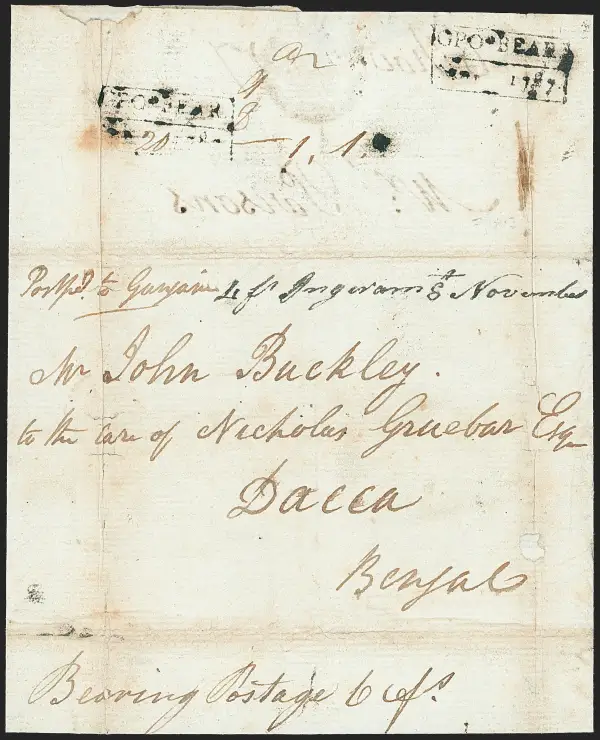 GPO•BEAR
1787
GPO•BEAR
20
1, 1,
Mr. Parsons
Postpd. to Ganjam 4 fs Ingeram 8t November
Mr John Buckley.
to the Care of Nicholas Gruebar Esqr
Dacca
Bengal
Bearing Postage 6 fs.